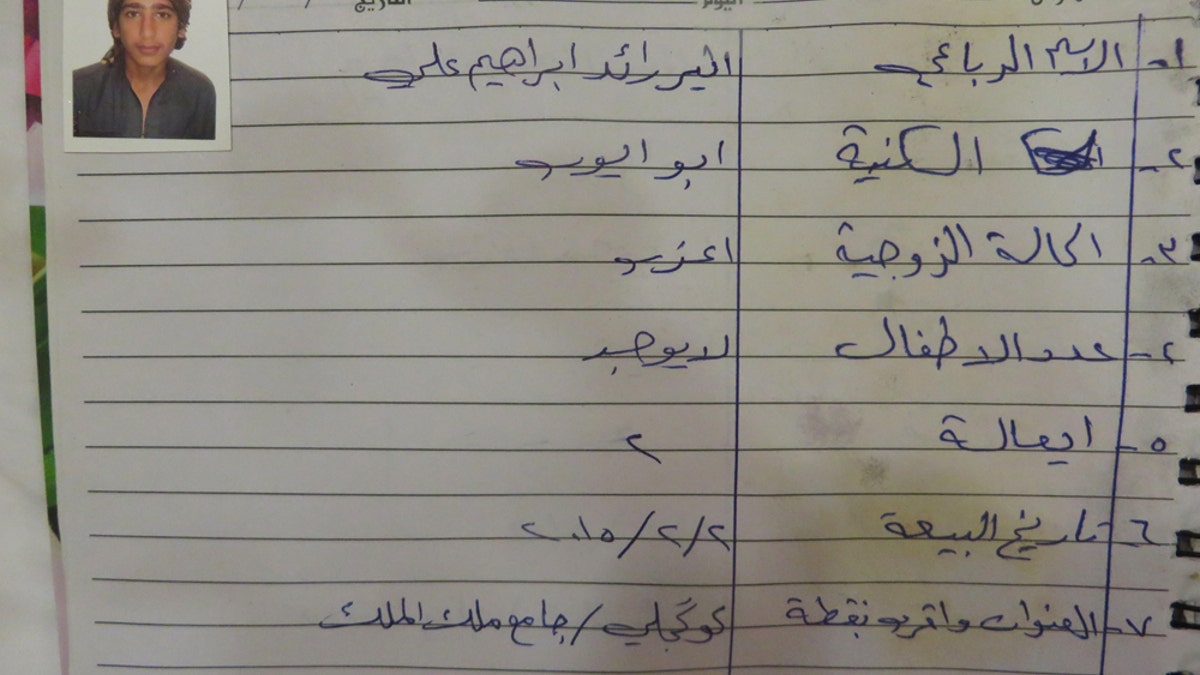 اليوم التاريخ / /
١- الاسم الرباعي اليسر رائد ابراهيم علي
٢- الكنية ابو ايوب
٣- الحالة الزوجية اعزب
٤- عدد الاطفال لا يوجد
٥- ايعالة ٢
٦- تاريخ البيعة ٢/٢/٢٠١٥
٧- العنوان واقرب نقطة كوكجلي / جامع ملك الملك